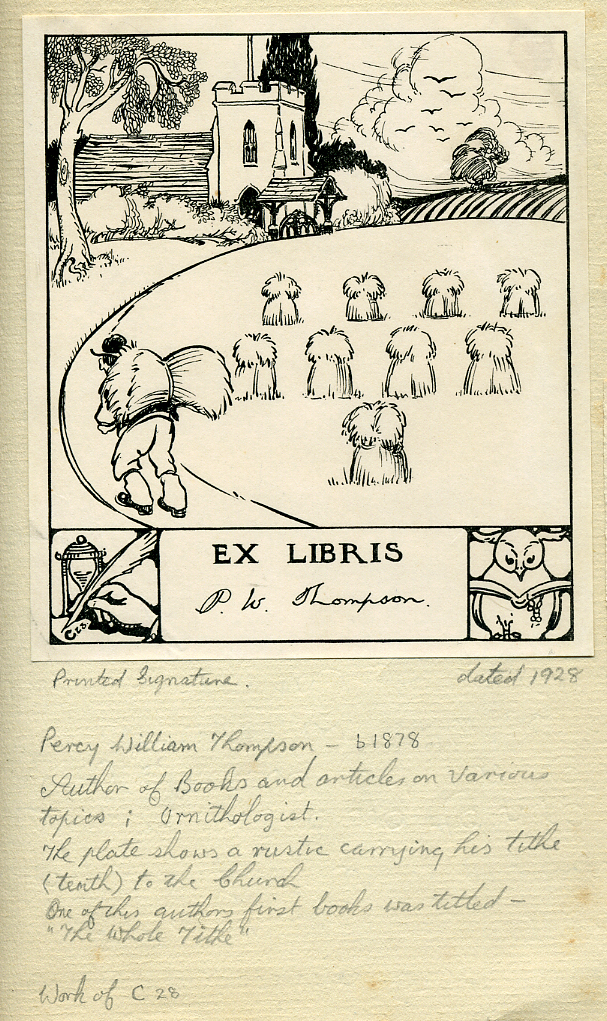 EX LIBRIS
P. W. Thompson.
Printed Signature. dated 1928
Percy William Thompson - b1878
Author of Books and articles on various
topics ; Ornithologist.
The plate shows a rustic carrying his tithe
(tenth) to the Church
One of this authors first books was titled -
"The Whole Tithe"
Work of C 28